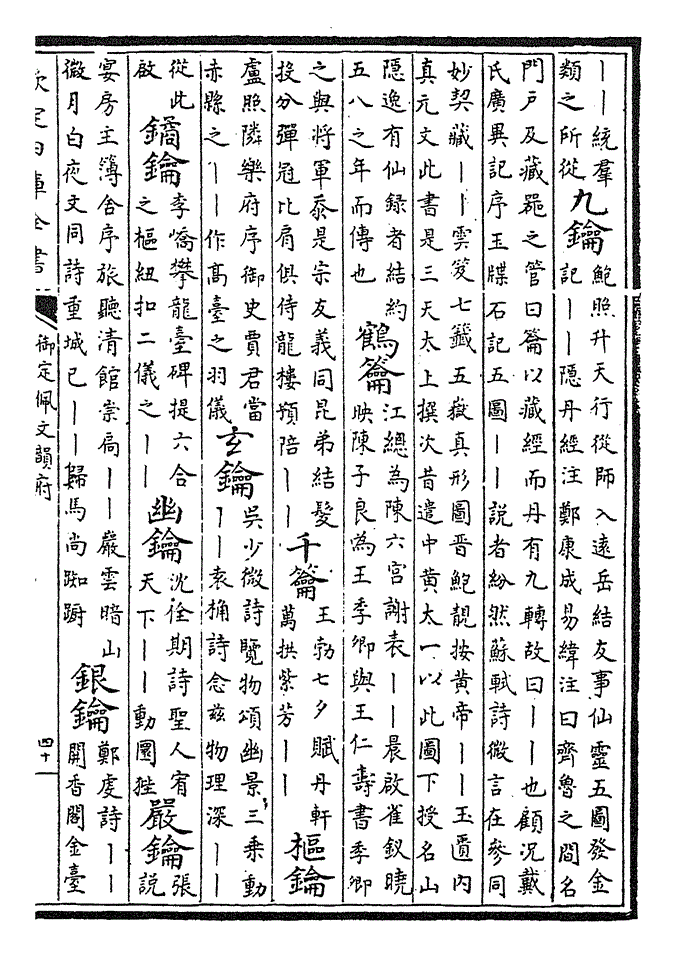 ——統羣
類之所從
九鑰
鮑照升天行從師入遠岳結友事仙靈五圖發金
記——隱丹經注鄭康成易緯注曰齊魯之間名
門戶及藏器之管曰籥以藏經而丹有九轉故曰——也顧況戴
氏廣異記序玉牒石記五圖——說者紛然蘇軾詩微言在參同
妙契藏——雲笈七籤五嶽真形圖晉鮑靚按黄帝——玉匱内
真元文此書是三天太上撰次昔遣中黄太一以此圖下授名山
隠逸有仙録者結約
五八之年而傳也
鶴籥
江總為陳六宫謝表——晨啟雀釵曉
映陳子良為王季卿與王仁壽書季卿
之與將軍忝是宗友義同昆弟結髪
投分彈冠比肩俱侍龍樓預陪——
千籥
王勃七夕賦丹軒
萬拱紫芳——
樞鑰
盧照隣樂府序御史賈君當
赤縣之——作髙臺之羽儀
玄鑰
吳少微詩覽物頌幽景三乘動
——袁桷詩念兹物理深——
從此
啟
鐍鑰
李嶠攀龍臺碑提六合
之樞紐扣二儀之——
幽鑰
沈佺期詩聖人宥
天下——動圜狴
嚴鑰
張
說
宴房主簿舍序旅聽清館崇扃——嚴雲暗山
微月白夜文同詩重城已——歸馬尚踟蹰
銀鑰
鄭虔詩——
開香閣金臺
欽定四庫全書
御定佩文韻府
四十